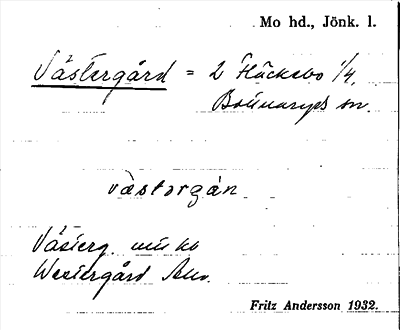 Mo hd., Jönk. l.
Västergård = 2 Häckebo 1/4.
Bottnaryds sn.
västorgán
Västerg.
Westergård
Fritz Andersson 1932.